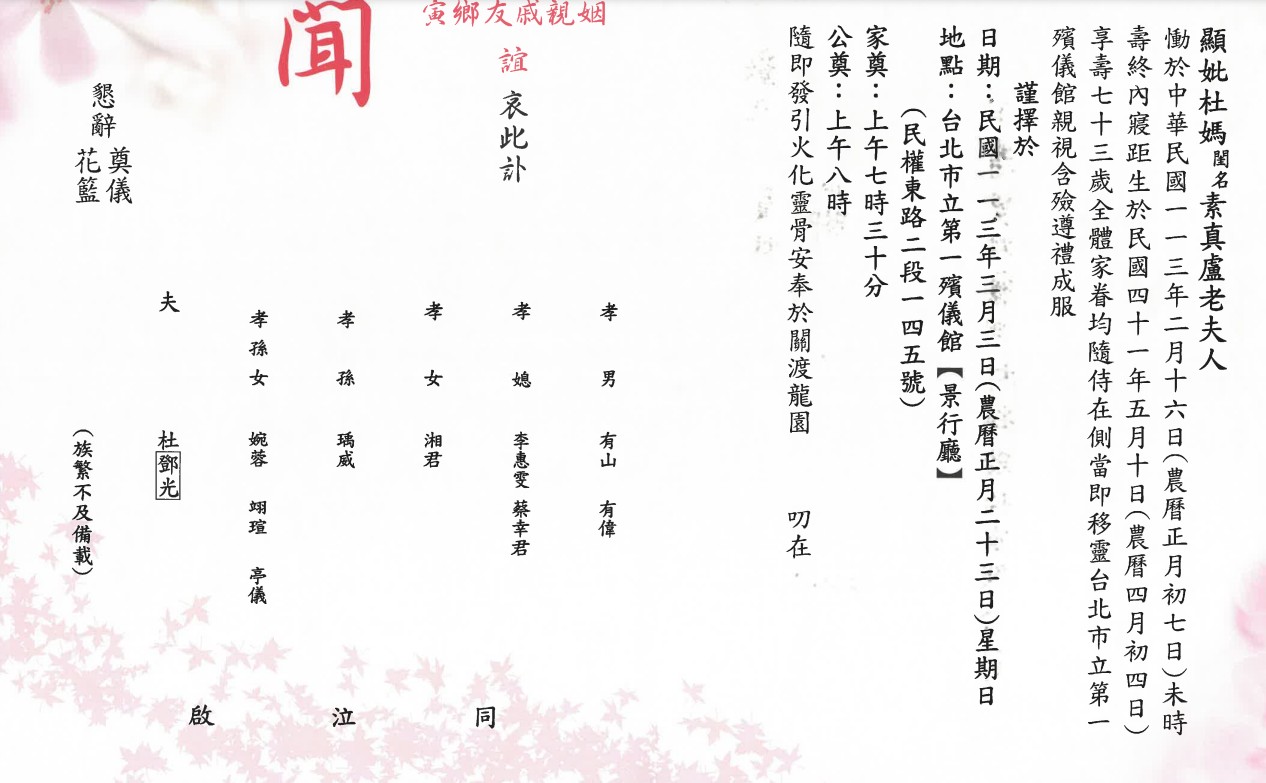 顯妣杜媽閨名素真盧老夫人
慟於中華民國一一三年二月十六日(農曆正月初七日)未時
壽終內寢距生於民國四十一年五月十日(農曆四月初四日)
享壽七十三歲全體家眷均隨侍在側當即移靈台北市立第一
殯儀館親視含殮遵禮成服
謹擇於
日期：民國一一三年三月三日(農曆正月二十三日)星期日
地點：台北市立第一殯儀館【景行廳】
(民權東路二段一四五號)
家奠：上午七時三十分
公奠：上午八時
隨即發引火化靈骨安奉於關渡龍園 叨在
寅鄉友戚親姻
誼 哀此訃
聞
孝男 有山 有偉
孝媳 李惠雯 蔡幸君
孝女 湘君
孝孫 瑀威
孝孫女 婉蓉 翊瑄 亭儀
夫 杜鄧光
(族繁不及備載)
同 泣 啟
懇辭 奠儀 花籃